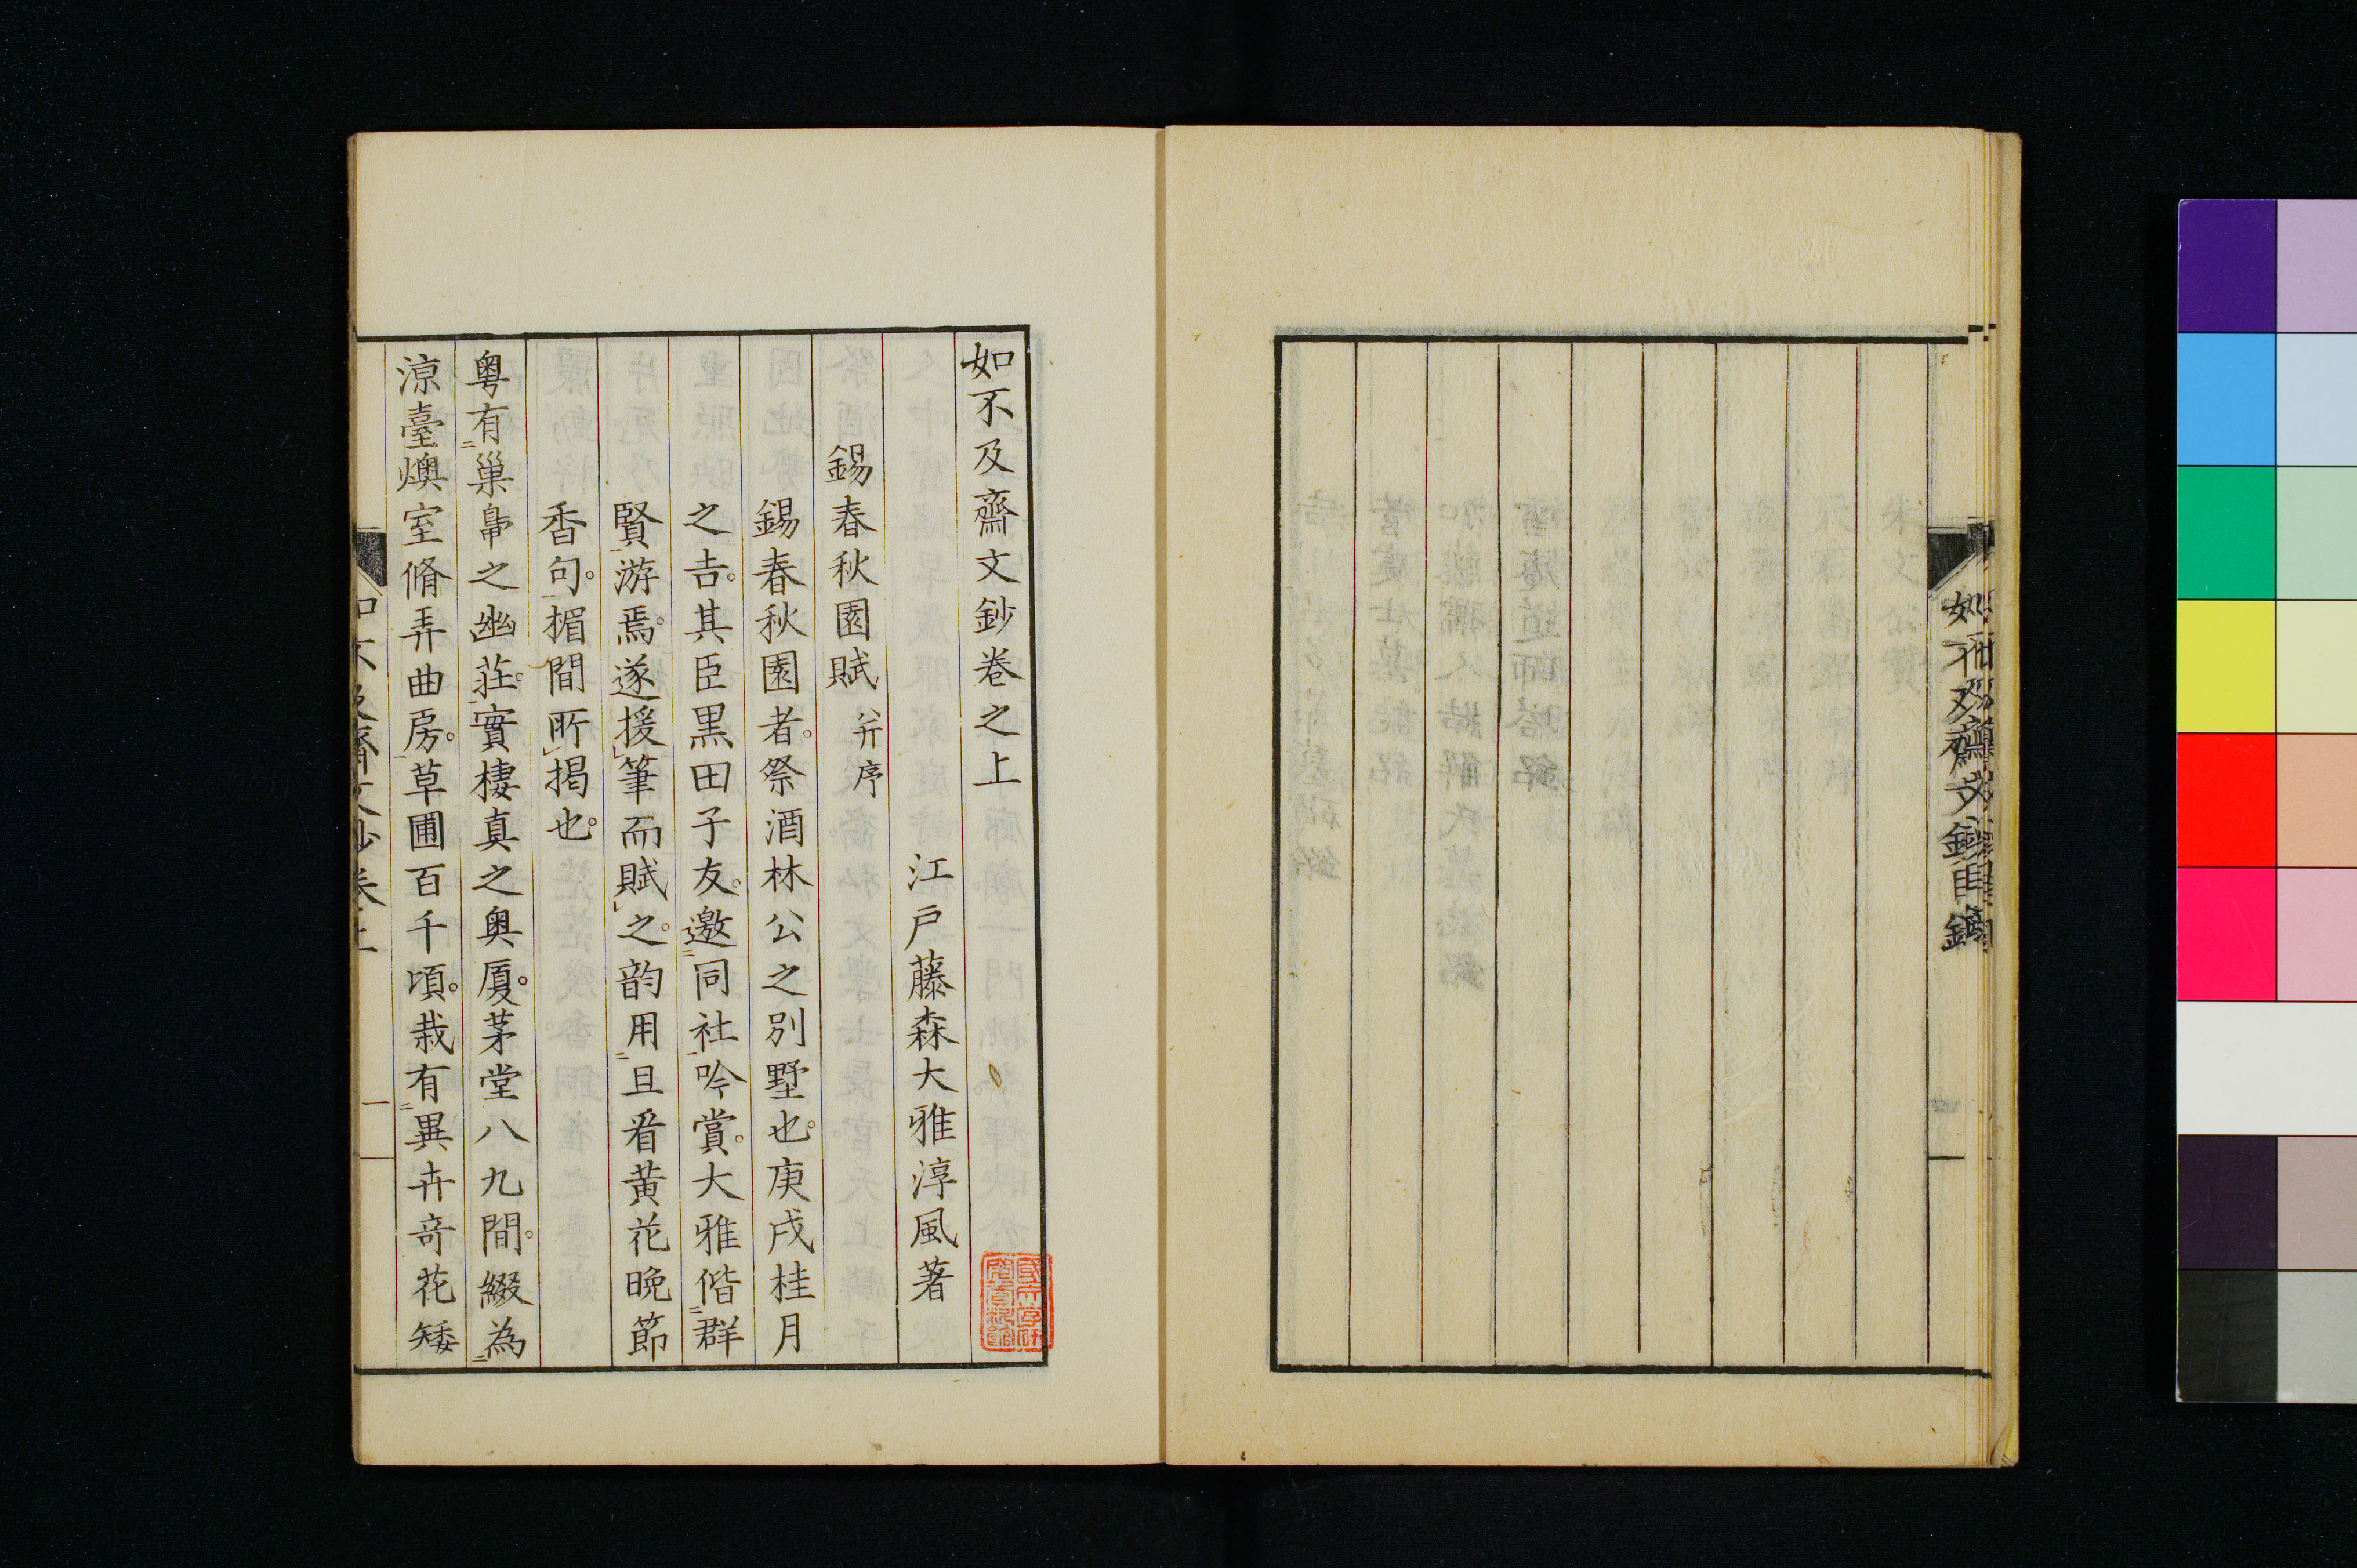 如不及齋文鈔卷之上
江戸藤森大雅淳風著
錫春秋園賦 并序
錫春秋園者。祭酒林公之別墅也。庚戌桂月
之吉。其臣黒田子友。邀同社吟賞。大雅偕群
賢游焉。遂援筆而賦之。韵用且看黄花晩節
香句。楣間所揭也。
粤有巢㠀之幽莊。實棲真之奥厦。茅堂八九間。綴為
涼臺燠室脩弄曲房。草圃百千頃。栽有異卉奇花矮